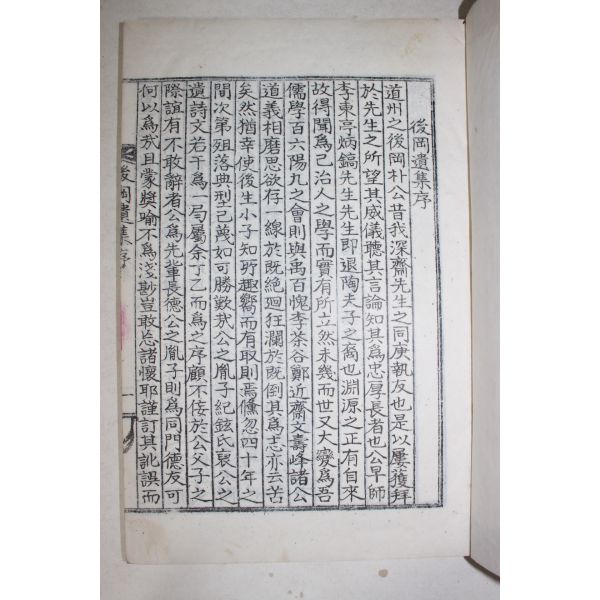 後岡遺集序
道州之後岡朴公昔我深齋先生之同庚執友也是以屢獲拜
於先生之所望其威儀聽其言論知其爲忠厚長者也公早師
李東亭炳鎬先生先生即退陶夫子之裔也淵源之正有自來
故得聞爲己治人之學而實有所立然未幾而世又大變爲吾
儒學百六陽九之會則與禹百愧李茶谷鄭近齋文壽峰諸公
道義相磨思欲存一線於既絶迴狂瀾於既倒其爲志亦云苦
矣然猶幸使後生小子知所趣嚮而有取則焉儵忽四十年之
間次第殂落典型已蔑如可勝歎哉公之胤子紀鉉氏裒公之
遺詩文若干爲一局屬余丁乙而爲之序顧不佞於公父子之
際誼有不敢辭者公爲先輩長德公之胤子則爲同門德友可
何以爲哉且蒙奬喻不爲淺尠豈敢忘諸懷耶謹訂其訛誤而
後岡遺集序
一